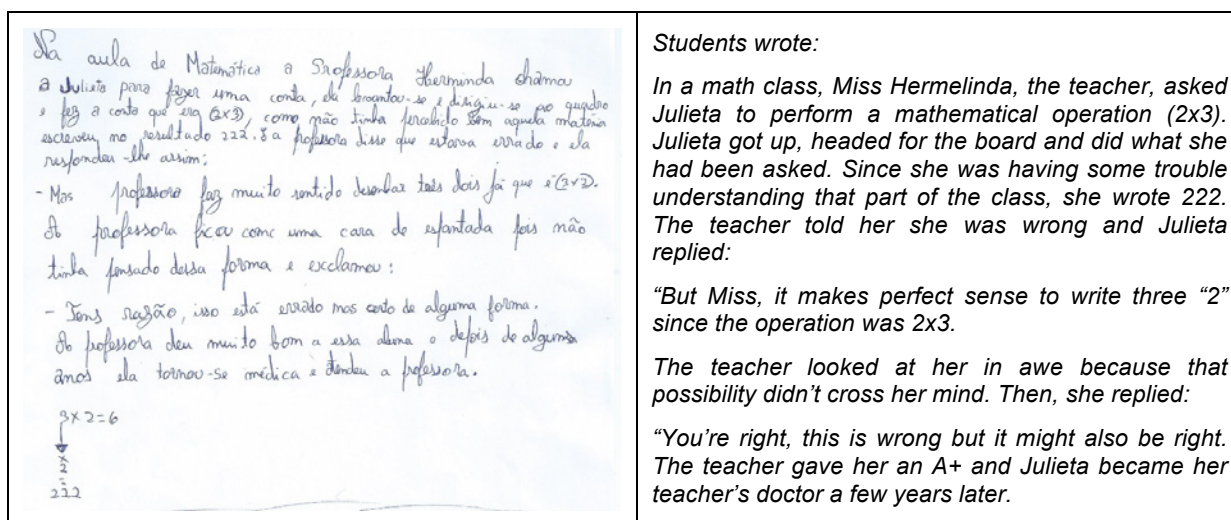 Na aula de Matemática a Professora Herminda chamou
a Julieta para fazer uma conta, ela levantou-se e dirigiu-se ao quadro
e fez a conta que era (2x3), como não tinha percebido bem aquela matéria
escreveu no resultado 222. E a professora disse que estava errado e ela
respondeu-lhe assim:
- Mas professora faz muito sentido desenhar três dois já que é (3x2).
A professora ficou com uma cara de espantada pois não
tinha pensado dessa forma e exclamou:
- Tens razão, isso está errado mas certo de alguma forma.
A professora deu muito bom a essa aluna e depois de alguns
anos ela tornou-se médica e atendeu a professora.
3x2=6
x
2
=
222
Students wrote:
In a math class, Miss Hermelinda, the teacher, asked
Julieta to perform a mathematical operation (2x3).
Julieta got up, headed for the board and did what she
had been asked. Since she was having some trouble
understanding that part of the class, she wrote 222.
The teacher told her she was wrong and Julieta
replied:
“But Miss, it makes perfect sense to write three “2”
since the operation was 2x3.
The teacher looked at her in awe because that
possibility didn’t cross her mind. Then, she replied:
“You’re right, this is wrong but it might also be right.
The teacher gave her an A+ and Julieta became her
teacher’s doctor a few years later.